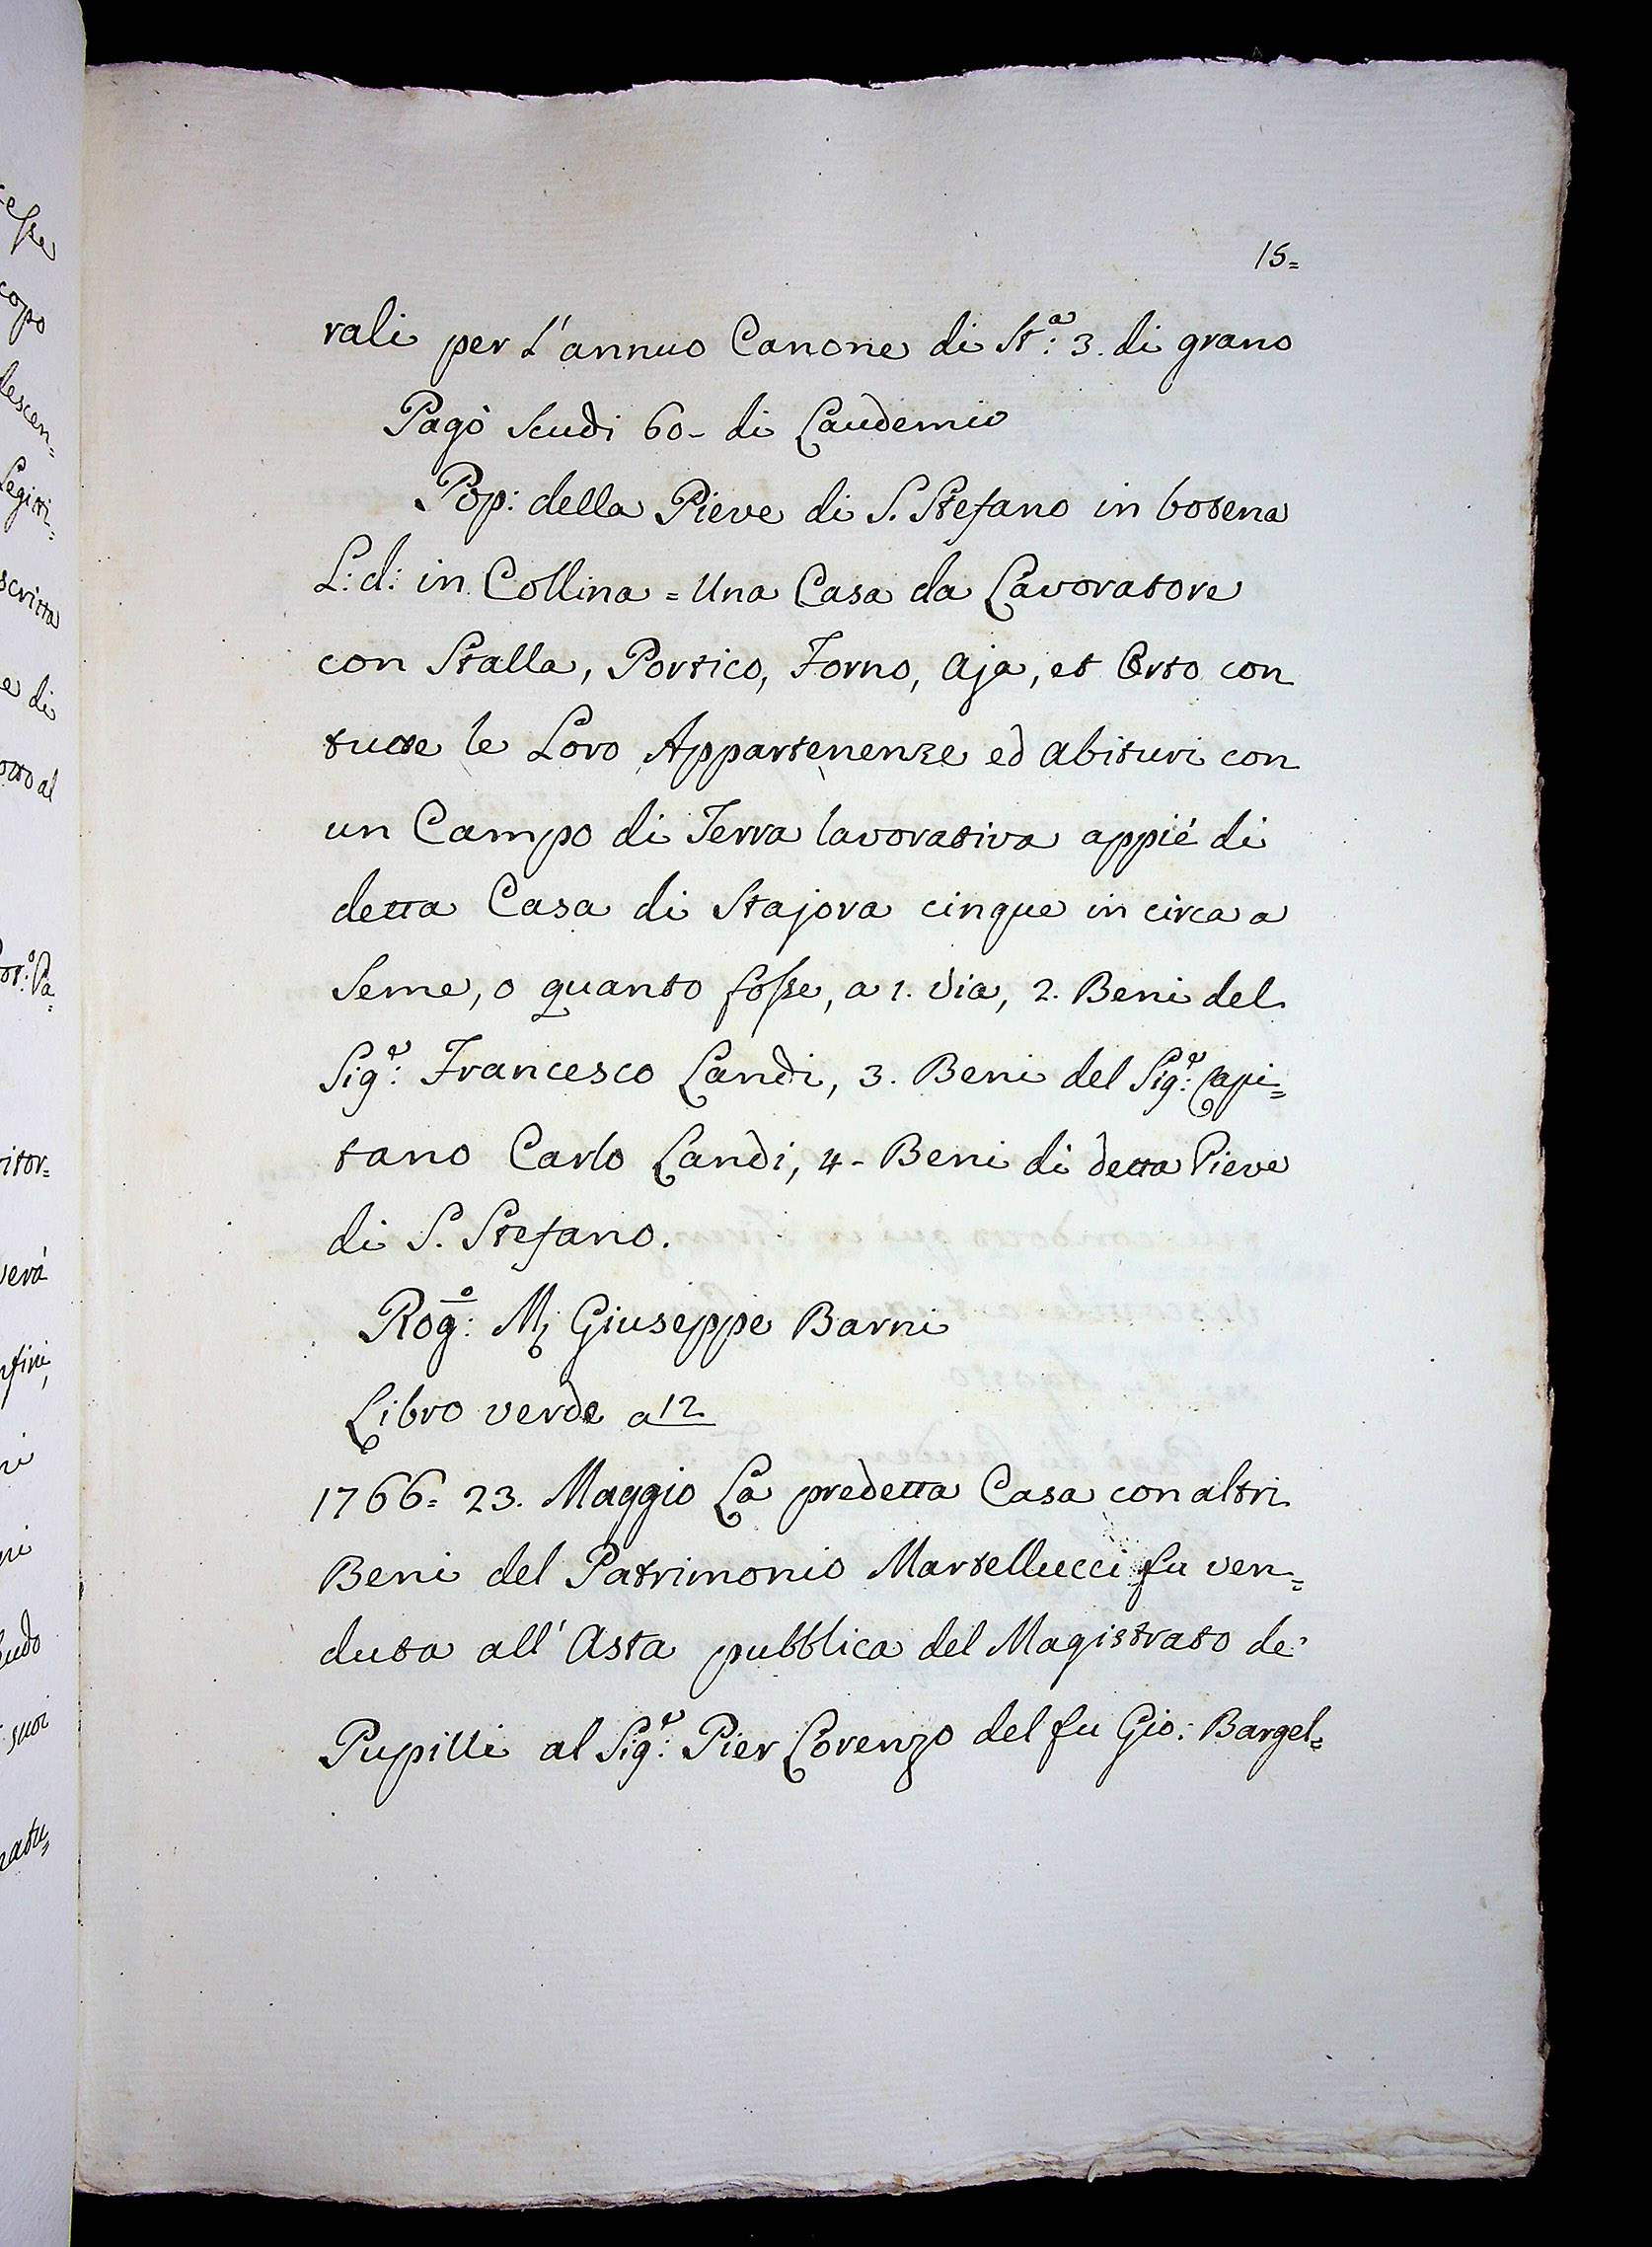 15=
rali per L'annuo Canone di St.ª: 3. di grano
Pagò Scudi 60- di Laudemio
Pop: della Pieve di S. Stefano in botena
L: d: in Collina = Una Casa da Lavoratore
con Stalla, Portico, Forno, Aja, et Orto con
tutte le Loro Appartenenze ed Abituri con
un Campo di Terra lavorativa appié di
detta Casa di Stajora cinque in circa a
Seme, o quanto fosse, a 1. Via, 2. Beni del
Sig.e: Francesco Landi, 3. Beni del Sig.e: Capi=
tano Carlo Landi, 4- Beni di detta Pieve
di S. Stefano.
Rog.º: M; Giuseppe Barni
Libro verde a 12
1766= 23. Maggio La predetta Casa con altri
Beni del Patrimonio Martellucci fu ven=
duta all' Asta pubblica del Magistrato de'
Pupilli al Sig.e: Pier Lorenzo del fu Gio: Bargel=